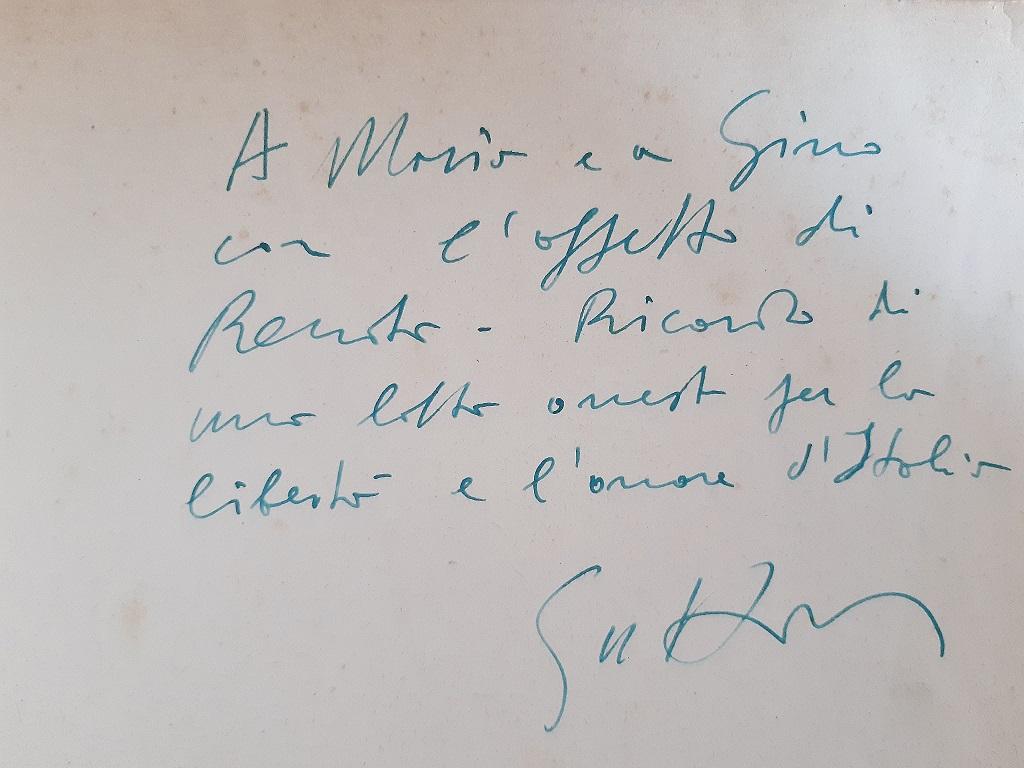 A Maria e a Gino
con l'affetto di
Renato - Ricordo di
una lotta onesta per la
libertà e l'onore d'Italia
Guttuso